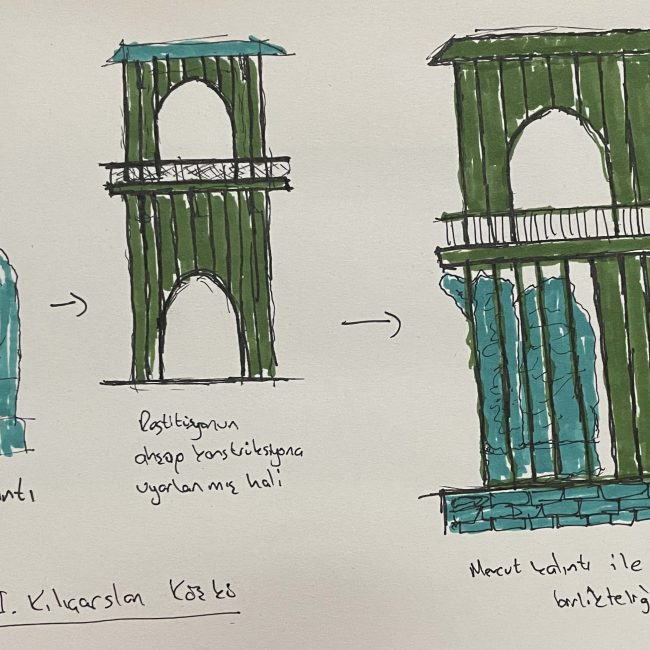 ntı
Restitüsyonun
ahşap konstrüksiyona
uyarlanmış hali
Mevcut kalıntı ile
birlikteliğ
I. Kılıçarslan Köşkü